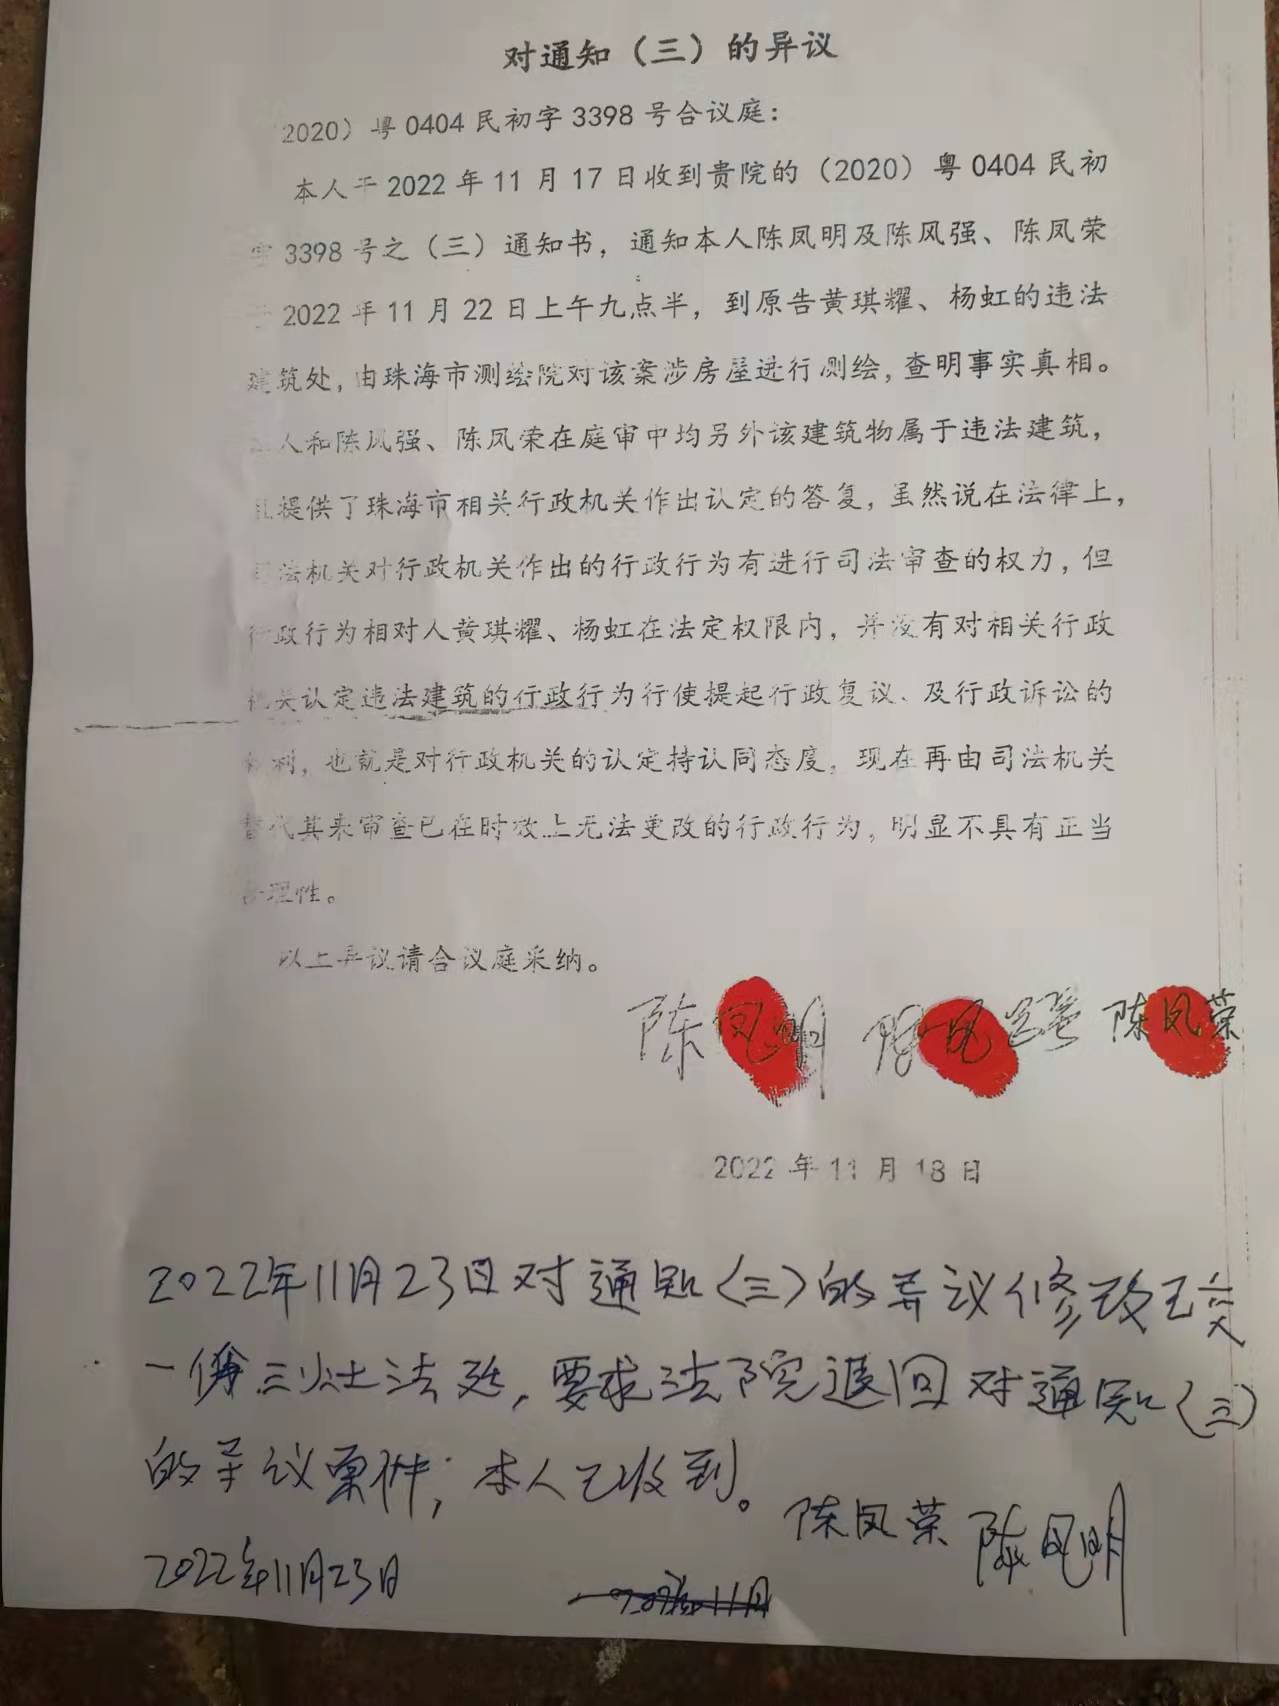 对通知（三）的异议
2020）粤0404民初字3398号合议庭：
本人于2022年11月17日收到贵院的（2020）粤0404民初
字3398号之（三）通知书，通知本人陈凤明及陈风强、陈凤荣
2022年11月22日上午九点半，到原告黄琪耀、杨虹的违法
建筑处，由珠海市测绘院对该案涉房屋进行测绘，查明事实真相。
人和陈凤强、陈凤荣在庭审中均另外该建筑物属于违法建筑，
且提供了珠海市相关行政机关作出认定的答复，虽然说在法律上，
司法机关对行政机关作出的行政行为有进行司法审查的权力，但
行政行为相对人黄琪耀、杨虹在法定权限内，并没有对相关行政
机关认定违法建筑的行政行为行使提起行政复议、及行政诉讼的
权利，也就是对行政机关的认定持认同态度，现在再由司法机关
替代其来审查已在时效上无法更改的行政行为，明显不具有正当
合理性。
以上异议请合议庭采纳。
陈凤明 陈凤强 陈凤荣
2022年11月18日
2022年11月23日对通知（三）的异议修改已交
一份三灶法廷，要求法院退回对通知（三）
的异议原件；本人已收到。
陈凤荣 陈凤明
2022年11月23日